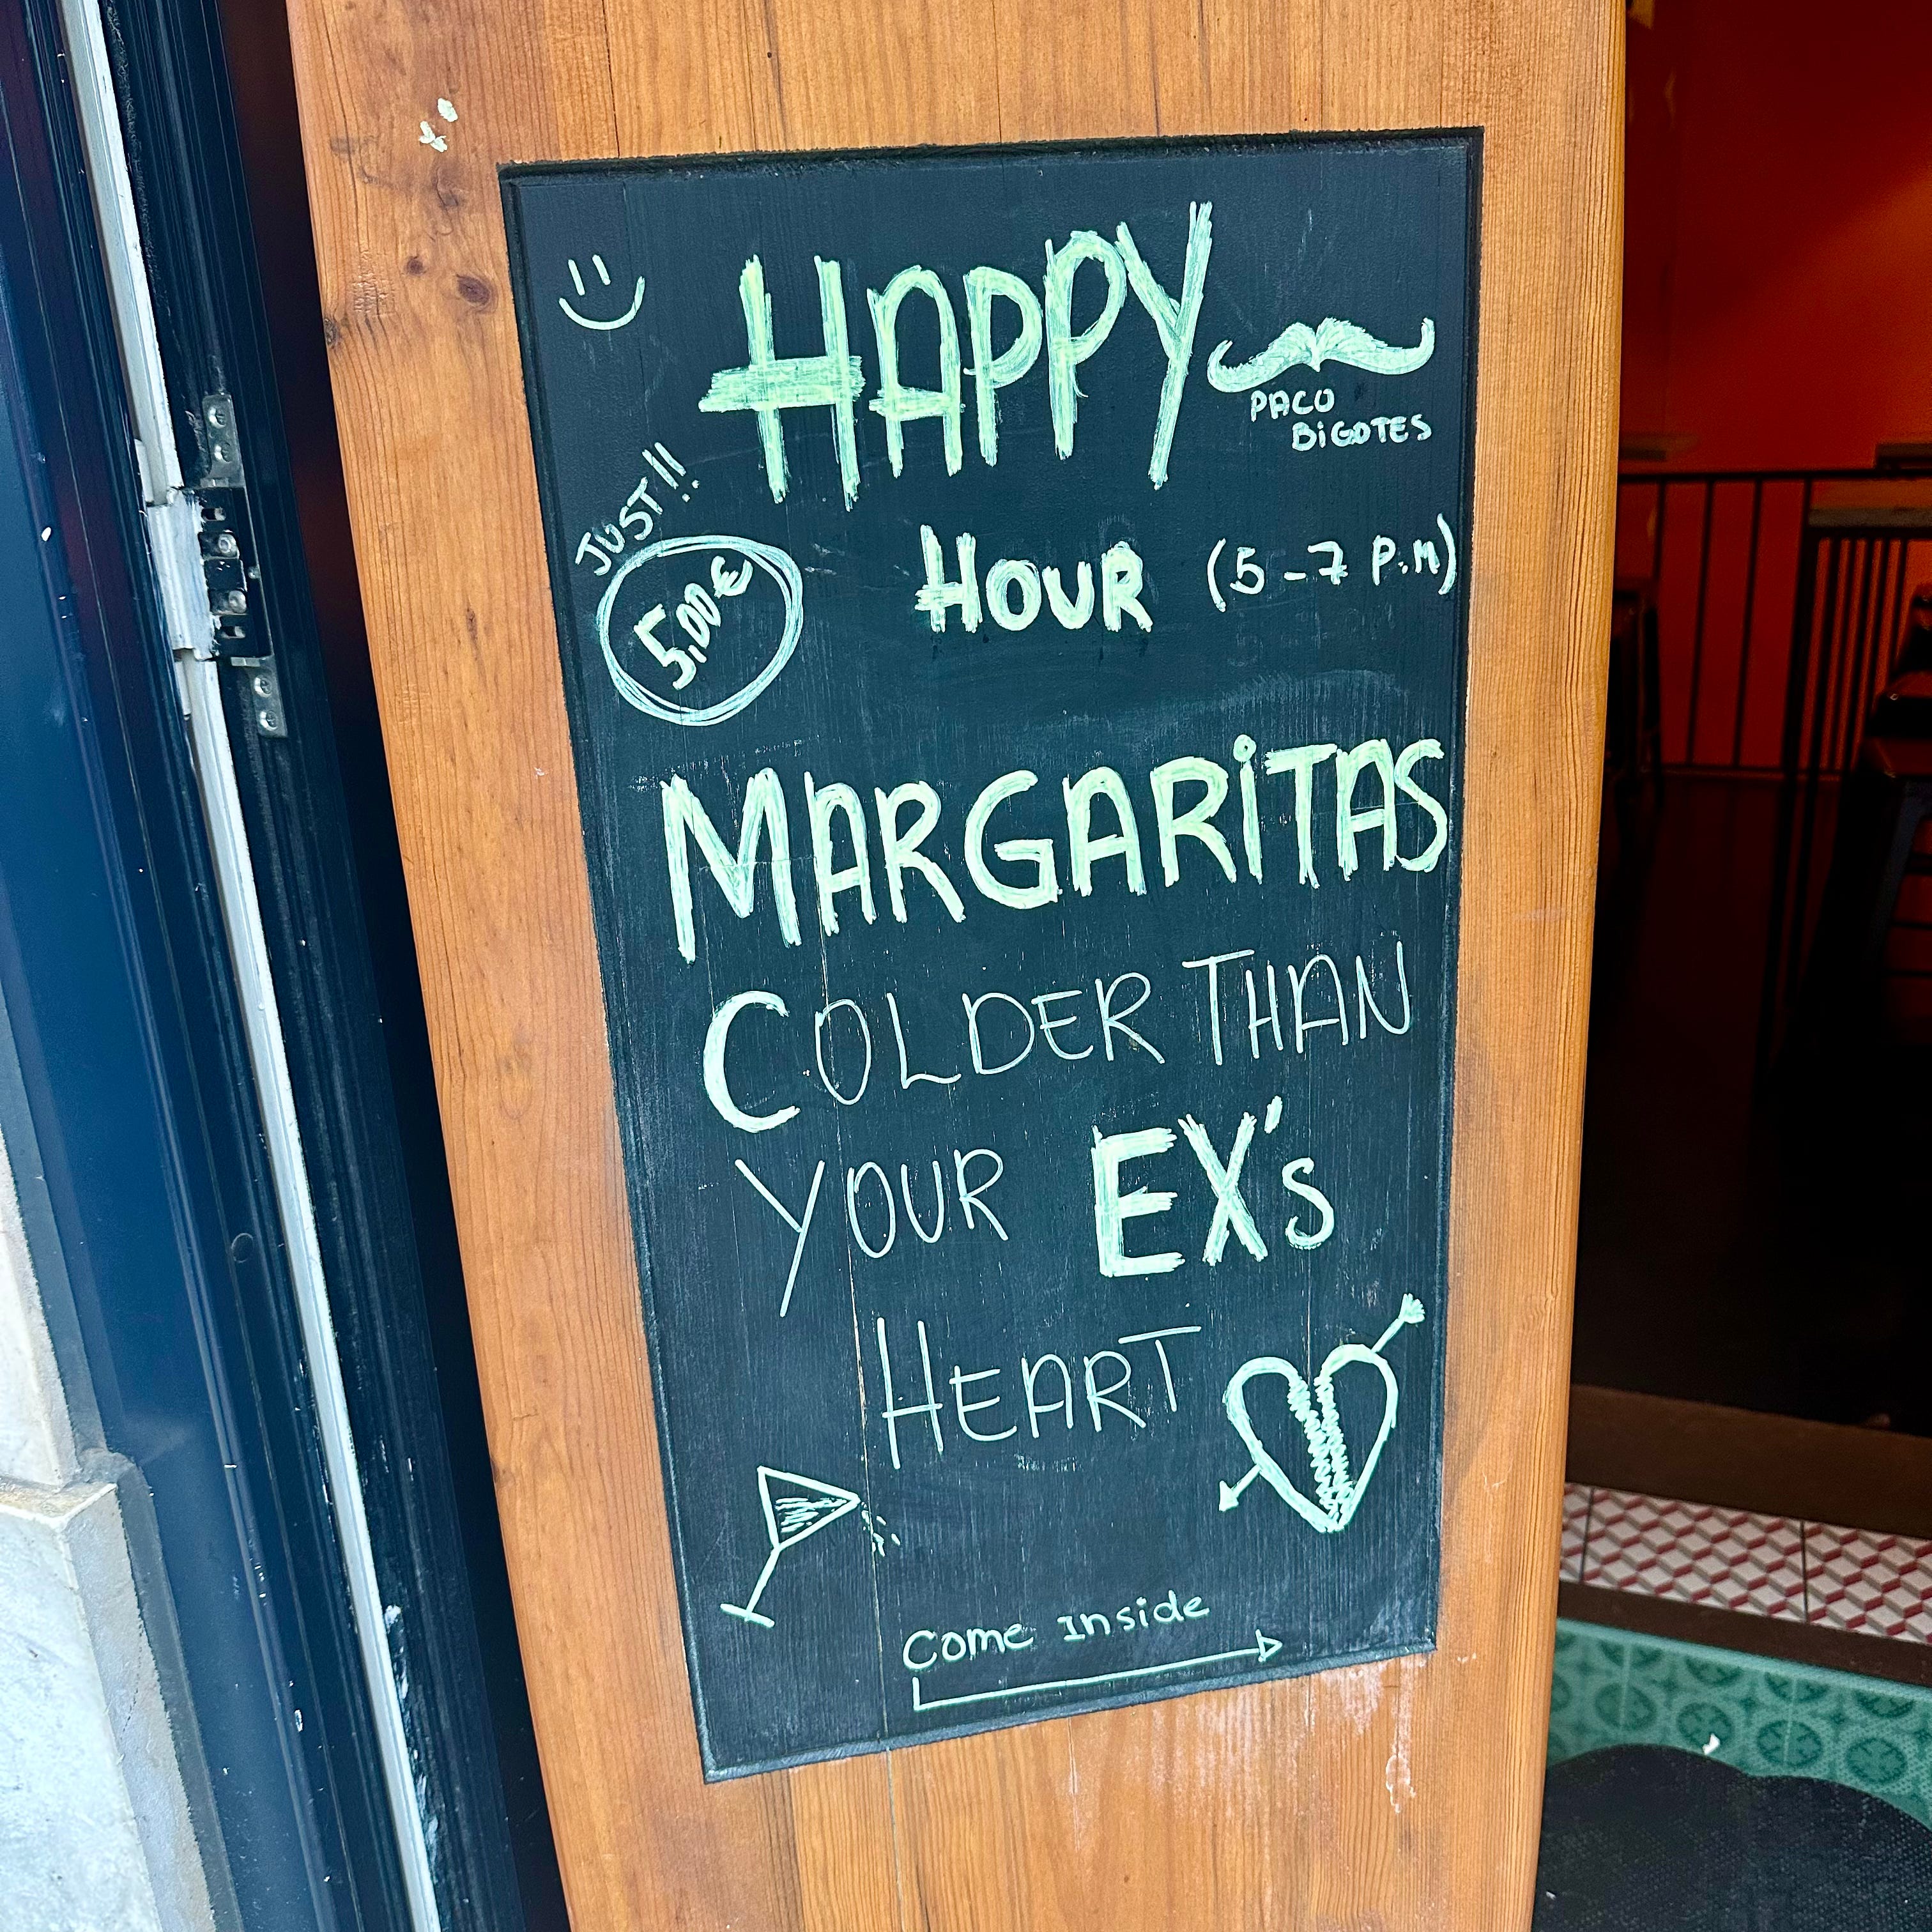 HAPPY
PACO
BiGOTES
JUST!!
5,00€
HOUR (5-7 P.M)
MARGARiTAS
COLDER THAN
YOUR EX's
HEART
Come Inside